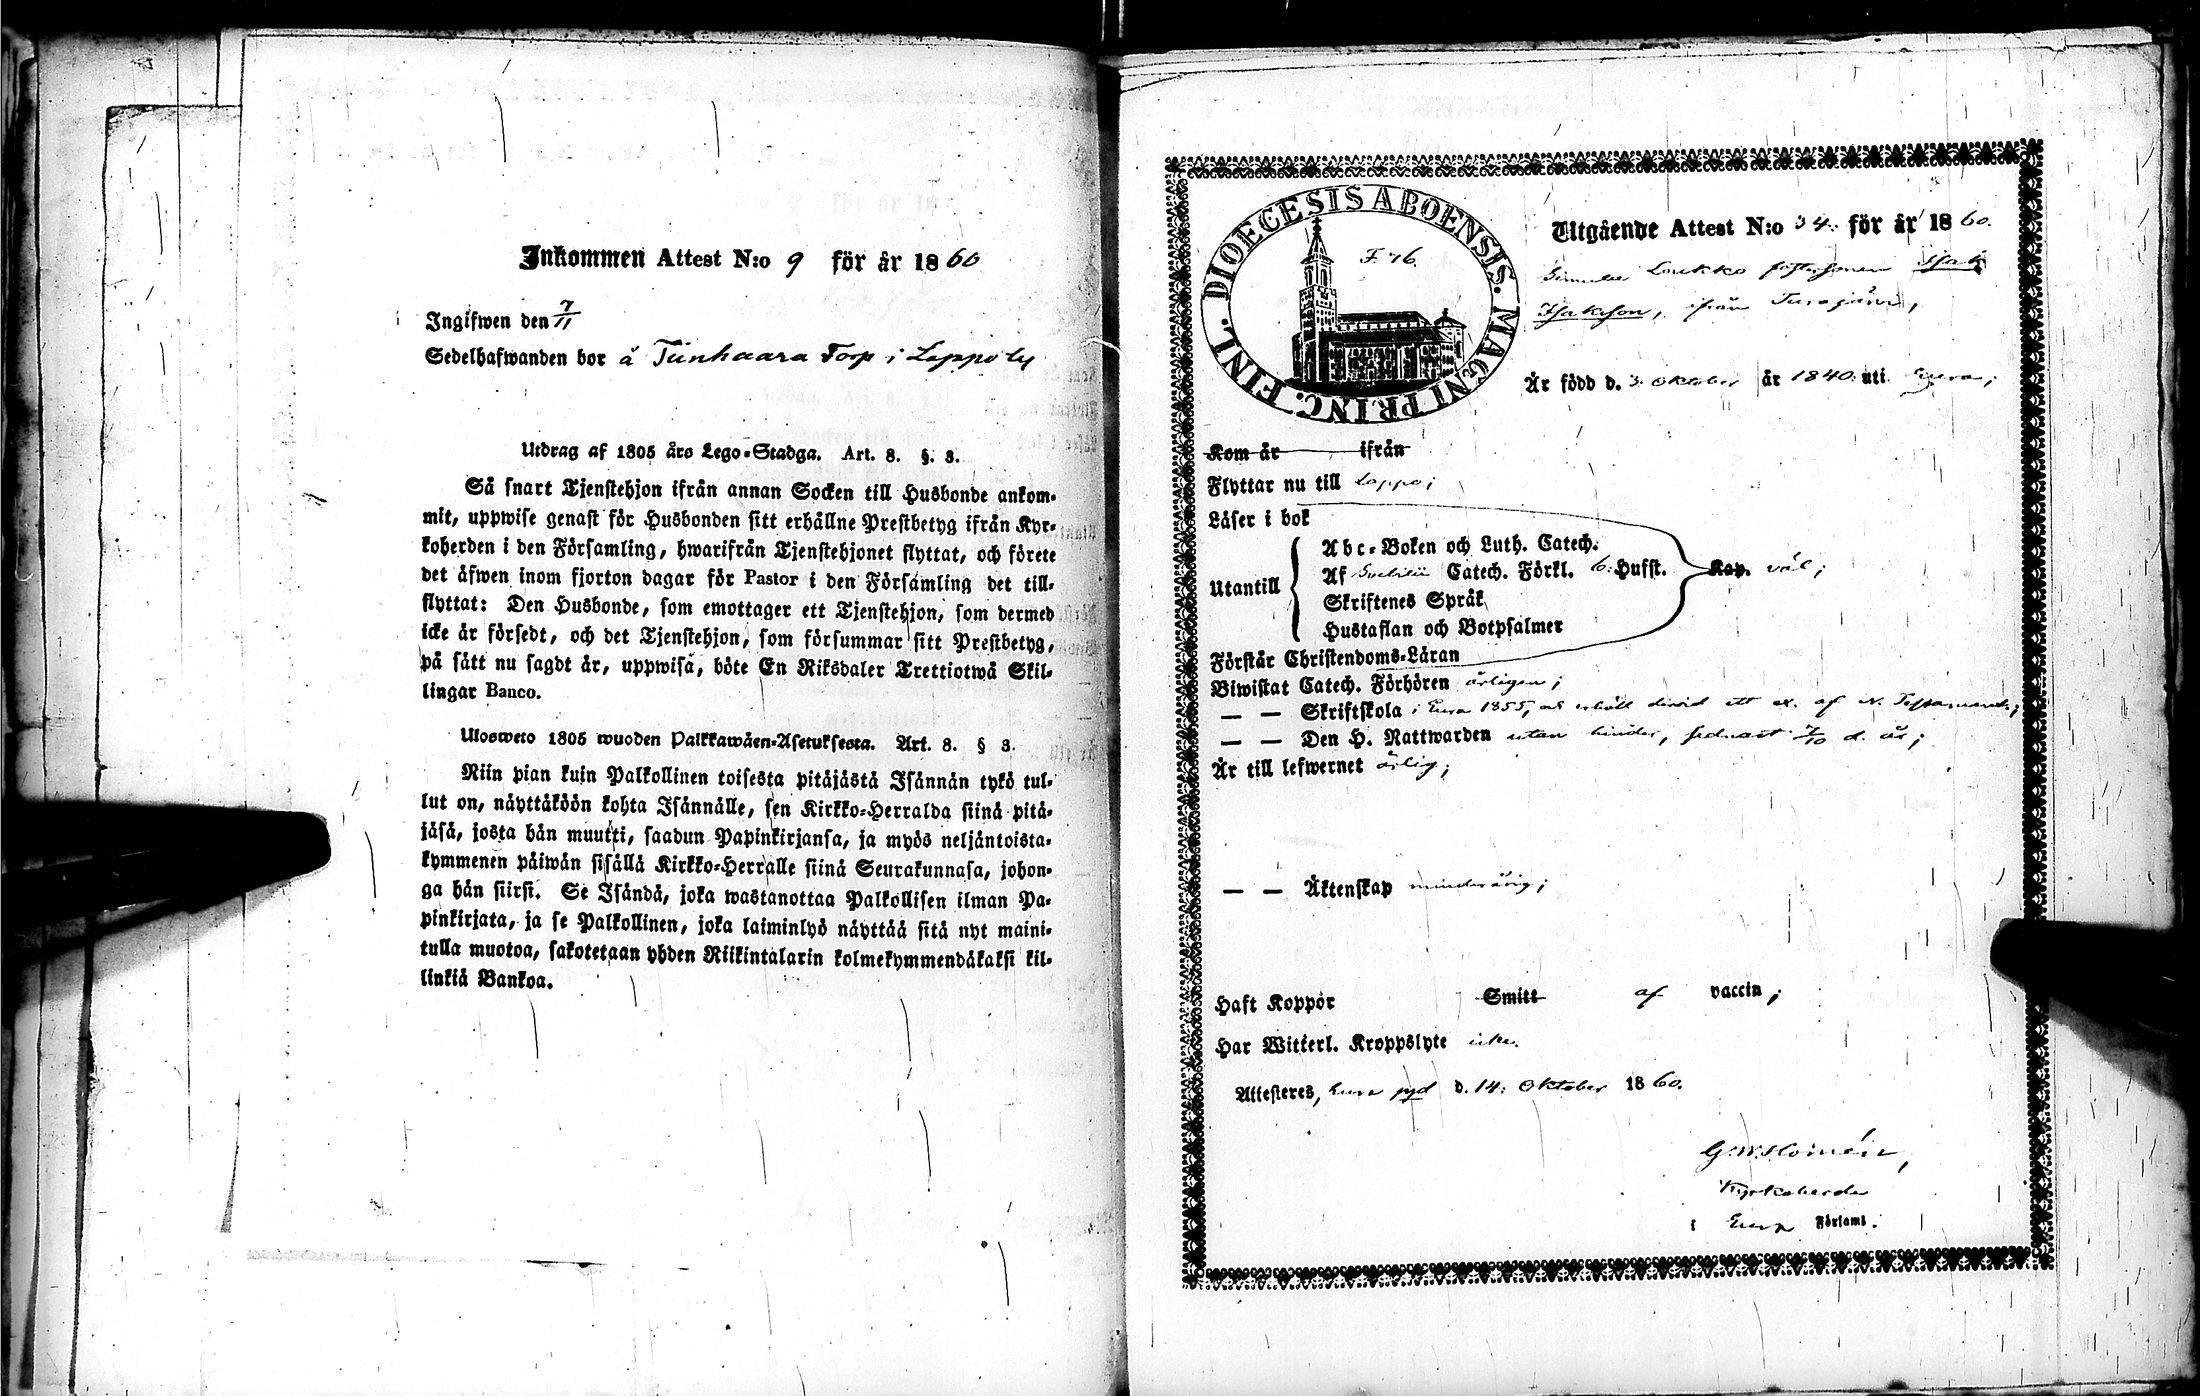 Inkommen Attest N:o 9 för år 1860
Ingifwen den 7/11
Sedelhafwanden bor å Tiinhaara Torp i Loppo by
Utdrag af 1805 års Lego-Stadga. Art. 8. §. 3.
Så snart Tjenstehjon ifrån annan Socken till Husbonde ankom-
mit, uppwise genast för Husbonden sitt erhållne Prestbetyg ifrån Kyr-
koherden i den Församling, hwarifrån Tjenstehjonet flyttat, och förete
det äfwen inom fjorton dagar för Pastor i den Församling det till-
flyttat: Den Husbonde, som emottager ett Tjenstehjon, som dermed
icke är försedt, och det Tjenstehjon, som försummar sitt Prestbetyg,
på sätt nu sagdt är, uppwisa, böte En Riksdaler Trettiotwå Skil-
lingar Banco.
Ulosweto 1805 wuoden Palkkawäen-Asetuksesta. Art. 8. § 3.
Niin pian kuin Palkollinen toisesta pitäjästä Isännän tykö tul-
lut on, näyttäköön kohta Isännälle, sen Kirkko-Herralda siinä pitä-
jäsä, josta hän muutti, saadun Papinkirjansa, ja myös neljäntoista-
kymmenen päiwän sisällä Kirkko-Herralle siinä Seurakunnasa, johon-
ga hän siirsi. Se Isändä, joka wastanottaa Palkollisen ilman Pa-
pinkirjata, ja se Palkollinen, joka laiminlyö näyttää sitä nyt maini-
tulla muotoa, sakotetaan yhden Riikintalarin kolmekymmendäkaksi kil-
linkiä Bankoa.
DIOECESIS ABOENSIS. MAGNI PRINC. FINL.
F. 76.
Utgående Attest N:o 34. för år 1860.
Loukko Isak
Isaksson, ifrån
Är född d. 3. Oktober år 1840. uti Eura;
Kom år ifrån
Flyttar nu till Loppo;
Läser i bok
Utantill
Abc-Boken och Luth. Catech.
Af Catech. Förkl. 6. Husst. Kap. väl;
Skriftenes Språk
Hustaflan och Botpsalmer
Förstår Christendoms-Läran
Biwistat Catech. Förhören årligen;
— — Skriftskola i Eura 1855, och erhöll ett ex. af N. Testamentet;
— — Den H. Nattwarden utan hinder, sednast 7/10 d. år;
Är till lefwernet ärlig;
— — Äktenskap minderårig;
Haft Koppor Smitt af vaccin;
Har Witterl. Kroppslyte icke.
Attesteres, Eura pgd d. 14. Oktober 1860.
Kyrkoherde
i Eura Förfaml.